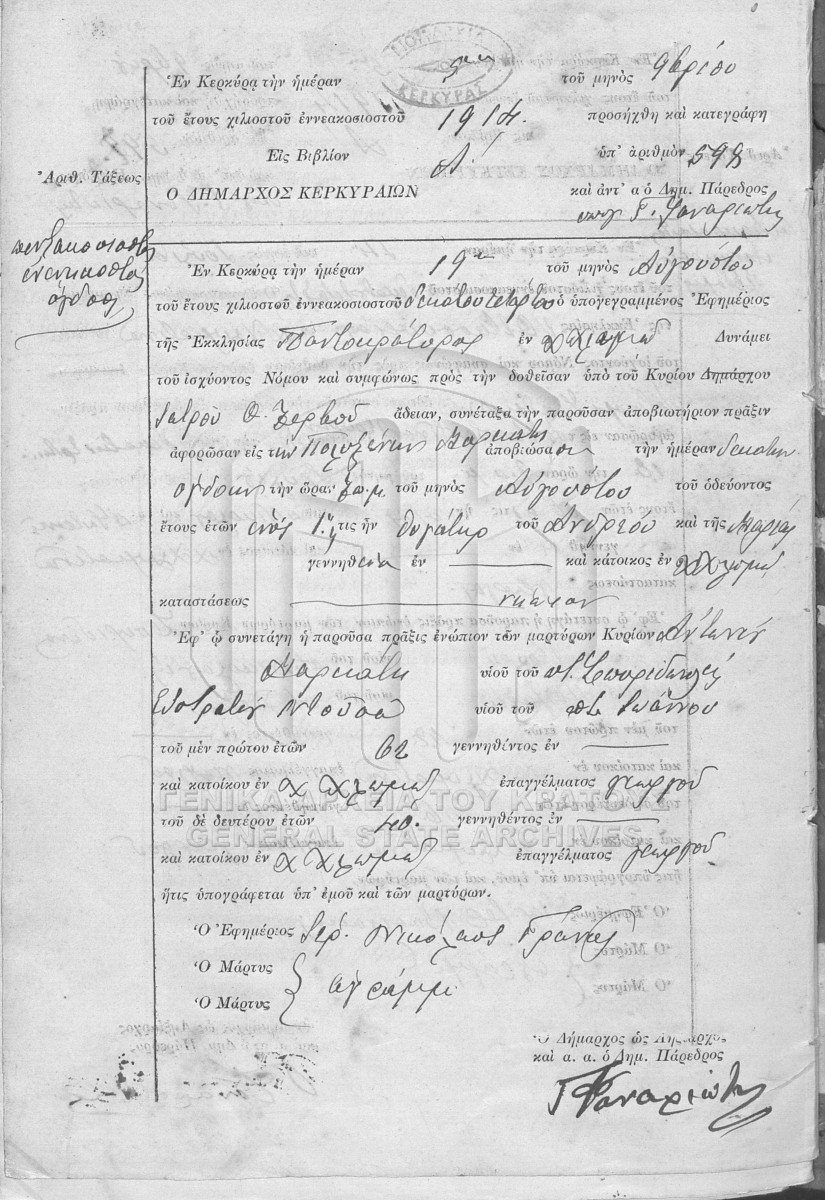 ΝΟΜΑΡΧΙΑ
ΚΕΡΚΥΡΑΣ
Ἐν Κερκύρᾳ τὴν ἡμέραν 5ην τοῦ μηνὸς 9βρίου
τοῦ ἔτους χιλιοστοῦ ἐννεακοσιοστοῦ 1914. προσήχθη καὶ κατεγράφη
Εἰς Βιβλίον Α' ὑπ' ἀριθμὸν 598
Ἀριθ. Τάξεως
Ο ΔΗΜΑΡΧΟΣ ΚΕΡΚΥΡΑΙΩΝ καὶ ἀντ' α ὁ Δημ. Πάρεδρος
υπογ Γ. Φαναριώτης
πεντακοσιοστὸν
ἐνενηκοστὸν
ὄγδοον
Ἐν Κερκύρᾳ τὴν ἡμέραν 19ην τοῦ μηνὸς Αὐγούστου
τοῦ ἔτους χιλιοστοῦ ἐννεακοσιοστοῦ δεκάτου τετάρτου ὁ ὑπογεγραμμένος Ἐφημέριος
τῆς Ἐκκλησίας Παντοκράτορος ἐν Χλωμῷ Δυνάμει
τοῦ ἰσχύοντος Νόμου καὶ συμφώνως πρὸς τὴν δοθεῖσαν ὑπὸ τοῦ Κυρίου Δημάρχου
Ἰατροῦ Θ. Ζερβοῦ ἄδειαν, συνέταξα τὴν παροῦσαν ἀποβιωτήριον πρᾶξιν
ἀφορῶσαν εἰς τὴν Πολυξένην Μαρκάτη ἀποβιώσασαν τὴν ἡμέραν δεκάτην
ὀγδόην τὴν ὥραν π.μ. τοῦ μηνὸς Αὐγούστου τοῦ ὁδεύοντος
ἔτους ἐτῶν ἑνὸς 1. ἥτις ἦν θυγάτηρ τοῦ Ἀνδρέου καὶ τῆς Μαρίας
γεννηθεῖσα ἐν καὶ κάτοικος ἐν Χλωμῷ
καταστάσεως νήπιον
Ἐφ' ᾧ συνετάγη ἡ παροῦσα πρᾶξις ἐνώπιον τῶν μαρτύρων Κυρίων Ἀντώνη
Μαρκάτη υἱοῦ τοῦ π. Σπυρίδωνος
Εὐστρατίου Ντούσα υἱοῦ τοῦ π. Ἰωάννου
τοῦ μὲν πρώτου ἐτῶν 62 γεννηθέντος ἐν
καὶ κατοίκου ἐν Χλωμῷ ἐπαγγέλματος γεωργοῦ
ΓΕΝΙΚΑ ΑΡΧΕΙΑ ΤΟΥ ΚΡΑΤΟΥΣ
τοῦ δὲ δευτέρου ἐτῶν 40. γεννηθέντος ἐν
GENERAL STATE ARCHIVES
καὶ κατοίκου ἐν Χλωμῷ ἐπαγγέλματος γεωργοῦ
ἥτις ὑπογράφεται ὑπ' ἐμοῦ καὶ τῶν μαρτύρων.
Ὁ Ἐφημέριος Ἱερ. Νικόλαος
Ὁ Μάρτυς
ἀγράμμ
Ὁ Μάρτυς
Ὁ Δήμαρχος ὡς Ληξίαρχος
καὶ α. α. ὁ Δημ. Πάρεδρος
Γ Φαναριώτης